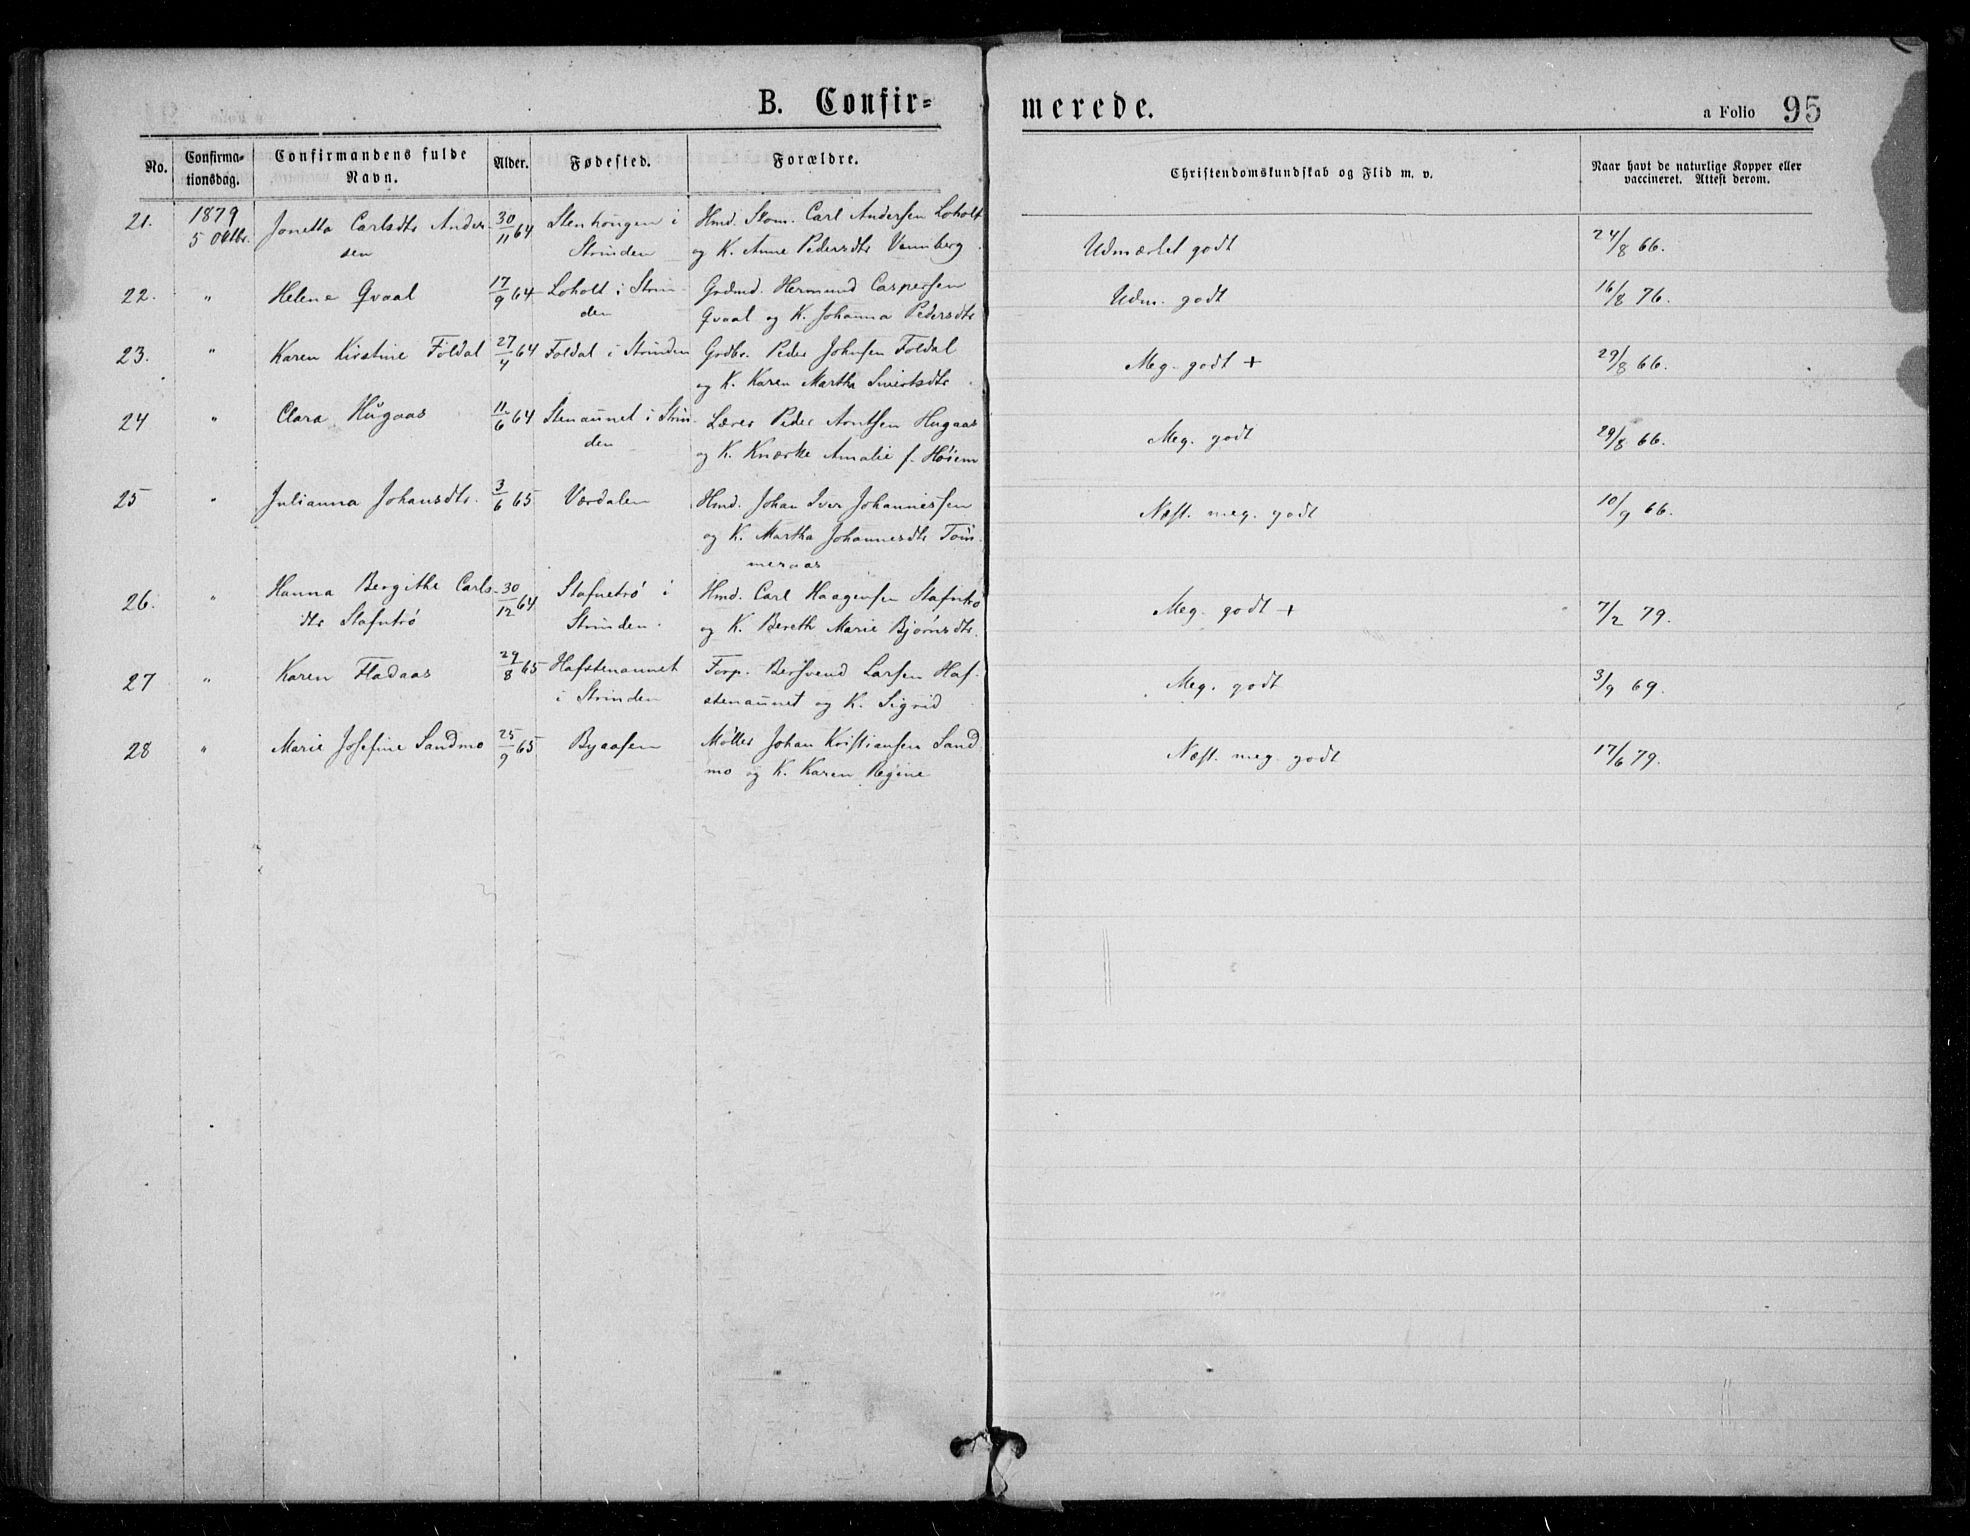 B. Confir=
merede.
a Folio 95
No. Confirma=tionsdag. Confirmandens fulde Navn. Alder. Fødested. Forældre. Christendomskundskab og Flid m. v. Naar havt de naturlige Kopper eller vaccineret. Attest derom.
21. 1879 Jonetta Carlsdtr Ander- 30/11 64 Stenhougen i Hmd. Carl Andersen Loholt
5 Oktbr. sen Strinden og K. Anne Pedersdtr Vennberg Udmærket godt 24/8 66.
22. " Helene Qvaal 17/9 64 Loholt i Strin- Grdmd. Hermund Caspersen Udm. godt 16/8 76.
den Qvaal og K. Johanna Pedersdtr
23. " Karen Kirstine Foldal 27/4 64 Foldal i Strinden Grdbr. Peder Johnsen Foldal Meg. godt + 29/8 66.
og K. Karen Martha Sivertsdtr
24 " Clara Hugaas 11/6 64 Stenaunet i Strin- Lærer Peder Arntsen Hugaas Meg. godt 29/8 66.
den og K. Amalie f. Høiem
25 " Julianna Johansdtr. 3/6 65 Værdalen Hmd. Johan Iver Johannesen Næst. meg. godt 10/9 66.
og K. Martha Johannesdtr Töm-
meraas
26. " Hanna Bergithe Carls- 30/12 64 Stafnetrø i Hmd. Carl Haagensen Stafntrø Meg. godt + 7/2 79.
dtr Stafntrø Strinden. og K. Bereth Marie Bjørnsdtr.
27 " Karen Fladaas 29/8 65 Hafstenaunet Forp. Berdsvend Larsen Haf- Meg. godt 3/9 69.
i Strinden stenaunet og K. Sigrid
28 " Marie Josefine Sandmo 25/9 65 Byaasen Møller Johan Kristiansen Sand- Næst. meg. godt 17/6 79.
mo og K. Karen Regine